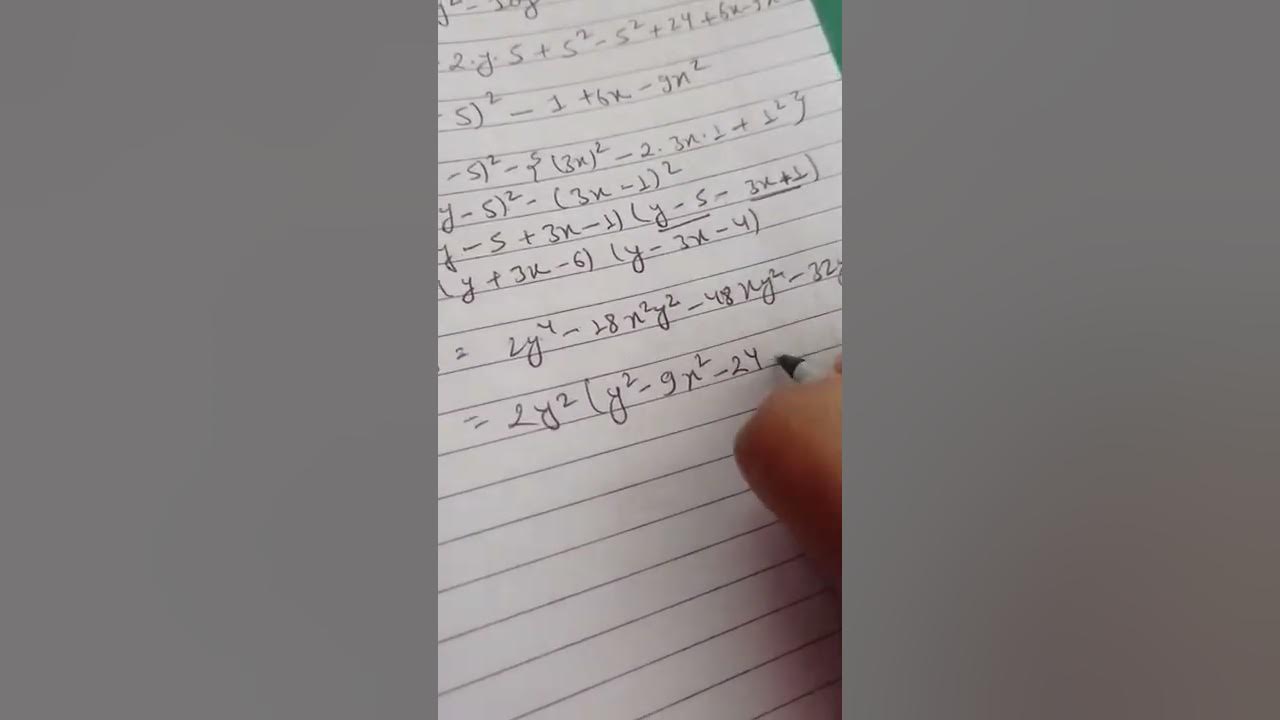 y² - 10y
2.y.5 + 5² - 5² + 24 + 6x - 9x
- 5)² - 1 + 6x - 9x²
- 5)² - {(3x)² - 2.3x.1 + 1²}
y - 5)² - (3x - 1)²
y - 5 + 3x - 1) (y - 5 - 3x + 1)
(y + 3x - 6) (y - 3x - 4)
= 2y⁴ - 18x²y² - 48xy² - 32y
= 2y² (y² - 9x² - 24